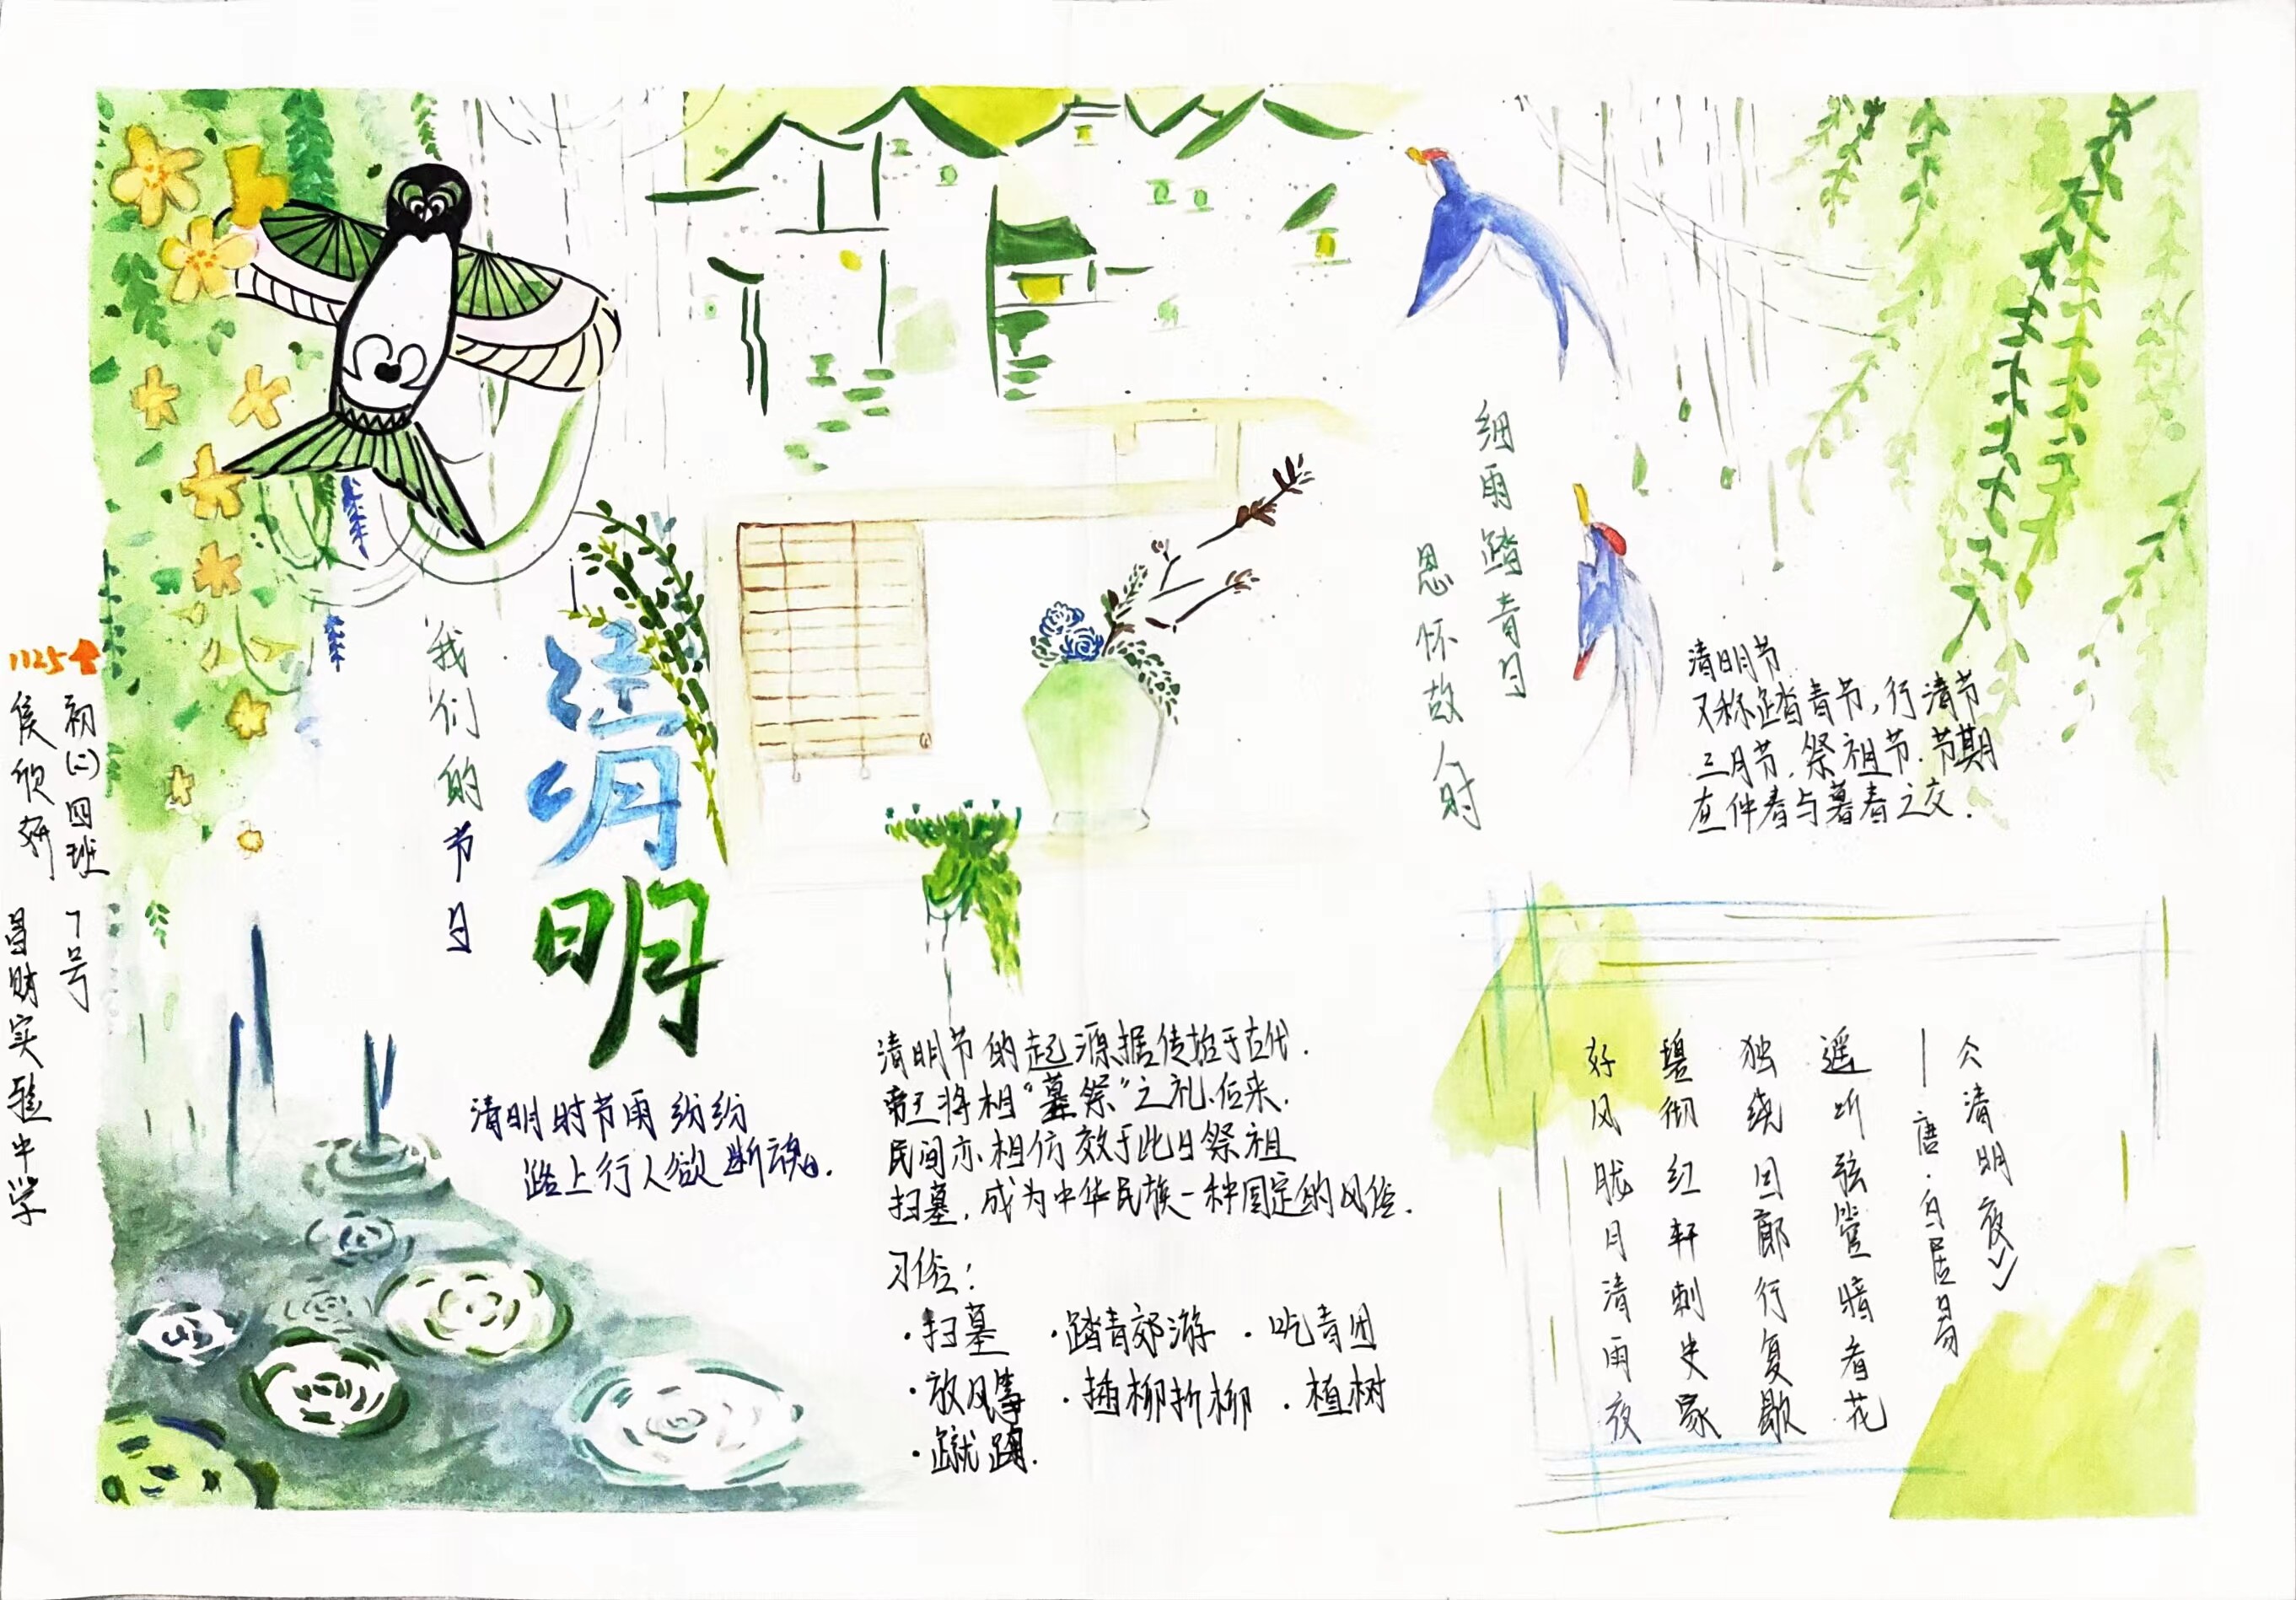 1125
初(二)四班 7号
侯欣妍 昌财实验中学
我们的节日
清明
清明时节雨纷纷
路上行人欲断魂.
细雨踏青日
思怀故人时
清明节
又称踏青节,行清节
三月节.祭祖节.节期
在仲春与暮春之交.
清明节的起源据传始于古代.
帝王将相“墓祭”之礼.后来.
民间亦相仿效于此日祭祖
扫墓.成为中华民族一种固定的风俗.
习俗:
·扫墓 ·踏青郊游 ·吃青团
·放风筝 ·插柳折柳 ·植树
·蹴踘.
《清明夜》
—唐·白居易
遥听弦管暗看花
独绕回廊行复歇
碧彻红轩刺史家
好风胧月清雨夜